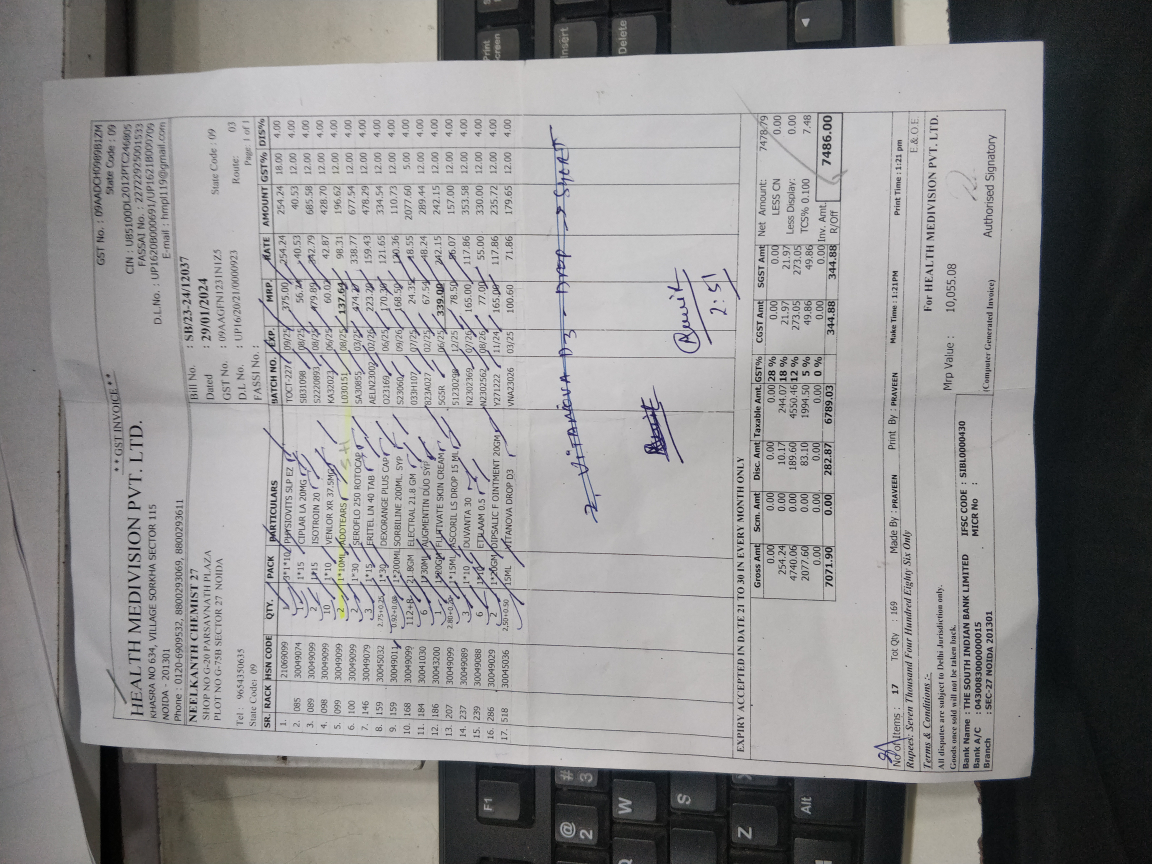 ** GST INVOICE **
GST No. : 09AADCH0989B1ZM
HEALTH MEDIVISION PVT. LTD.
State Code : 09
KHASRA NO 634, VILLAGE SORKHA SECTOR 115
CIN : U85100DL2012PTC246805
NOIDA - 201301
FASSAI No. : 22722925001533
Phone : 0120-6909532, 8800293069, 8800293611
D.L.No. : UP1620B000691/UP1621B000709
E-mail : hmpl119@gmail.com
NEELKANTH CHEMIST 27
Bill No. : SB/23-24/12037
SHOP NO G-20 PARSAVNATH PLAZA
Dated : 29/01/2024
PLOT NO G-75B SECTOR 27 NOIDA
GST No. : 09AAGFN1231N1Z5 State Code : 09
D.L. No. : UP16/20/21/0000923 Route: 03
Tel : 9654350635
FASSI No. : Page: 1 of 1
State Code: 09
SR. RACK HSN CODE QTY. PACK PARTICULARS BATCH NO. EXP. MRP. RATE AMOUNT GST% DIS%
1. 21069099 3*1*10 PHYSIOVITS SLP EZ TOCT-227 09/25 375.00 254.24 254.24 18.00 4.00
2. 085 30049074 1 1*15 CIPLAR LA 20MG SB31098 08/25 40.53 40.53 12.00 4.00
3. 089 30049099 2 1*15 ISOTROIN 20 S2220893 08/25 479.89 342.79 685.58 12.00 4.00
4. 098 30049099 10 1*10 VENLOR XR 37.5MG KA32023 06/25 60.02 42.87 428.70 12.00 4.00
5. 099 30049099 2 1*10ML ADDTEARS L030151 08/25 137.64 98.31 196.62 12.00 4.00
6. 100 30049099 2 1*30 SEROFLO 250 ROTOCAP SA30855 03/25 338.77 677.54 12.00 4.00
7. 146 30049079 3 1*15 ERITEL LN 40 TAB AELN23002 02/26 159.43 478.29 12.00 4.00
8. 159 30045032 2.75+0.25 1*30 DEXORANGE PLUS CAP O23169 06/25 121.65 334.54 12.00 4.00
9. 159 30049011 0.92+0.08 1*200ML SORBILINE 200ML SYP S23060 09/26 168.50 120.36 110.73 12.00 4.00
10. 168 30049099 112+8 21.8GM ELECTRAL 21.8 GM 033H107 07/25 24.35 18.55 2077.60 5.00 4.00
11. 184 30041030 6 1*30ML AUGMENTIN DUO SYP 823A027 02/25 67.54 48.24 289.44 12.00 4.00
12. 186 30043200 1 FLUTIVATE SKIN CREAM SGSR 06/25 339.00 242.15 242.15 12.00 4.00
13. 207 30049099 1*15ML ASCORIL LS DROP 15 ML 12/25 78.50 56.07 157.00 12.00 4.00
14. 237 30049089 3 1*10 DUVANTA 30 N2302369 07/26 165.00 117.86 353.58 12.00 4.00
15. 239 30049088 6 1*10 ETILAAM 0.5 N2302562 08/26 77.00 55.00 330.00 12.00 4.00
16. 286 30049029 2 1*20GM DIPSALIC F OINTMENT 20GM Y271222 11/24 165.00 117.86 235.72 12.00 4.00
17. 518 30045036 2.50+0.50 15ML VITANOVA DROP D3 VNA23026 03/25 100.60 71.86 179.65 12.00 4.00
2, VITANOVA D3 Drop → SHORT
2:51
EXPIRY ACCEPTED IN DATE 21 TO 30 IN EVERY MONTH ONLY
Gross Amt Scm. Amt Disc. Amt Taxable Amt. GST% CGST Amt SGST Amt Net Amount: 7478.79
0.00 0.00 0.00 0.00 28 % 0.00 0.00 LESS CN 0.00
254.24 0.00 10.17 244.07 18 % 21.97 21.97 Less Display: 0.00
4740.06 0.00 189.60 4550.46 12 % 273.05 273.05 TCS% 0.100 7.48
2077.60 0.00 83.10 1994.50 5 % 49.86 49.86
0.00 0.00 0.00 0.00 0 % 0.00 0.00 Inv. Amt.
7071.90 0.00 282.87 6789.03 344.88 344.88 R/Off 7486.00
No of Items : 17 Tot Qty : 169 Made By : PRAVEEN Print By : PRAVEEN Make Time : 1:21PM Print Time : 1:21 pm
Rupees: Seven Thousand Four Hundred Eighty Six Only E.& O.E
Terms & Conditions :-
For HEALTH MEDIVISION PVT. LTD.
All disputes are subject to Delhi Jurisdiction only.
Goods once sold will not be taken back.
Mrp Value : 10,055.08
Bank Name : THE SOUTH INDIAN BANK LIMITED IFSC CODE : SIBL0000430
Bank A/C : 0430083000000015 MICR No :
Branch : SEC-27 NOIDA 201301
(Computer Generated Invoice) Authorised Signatory
Print Screen
Insert
Delete
F1
@ 2
# 3
W
S
Z
Alt